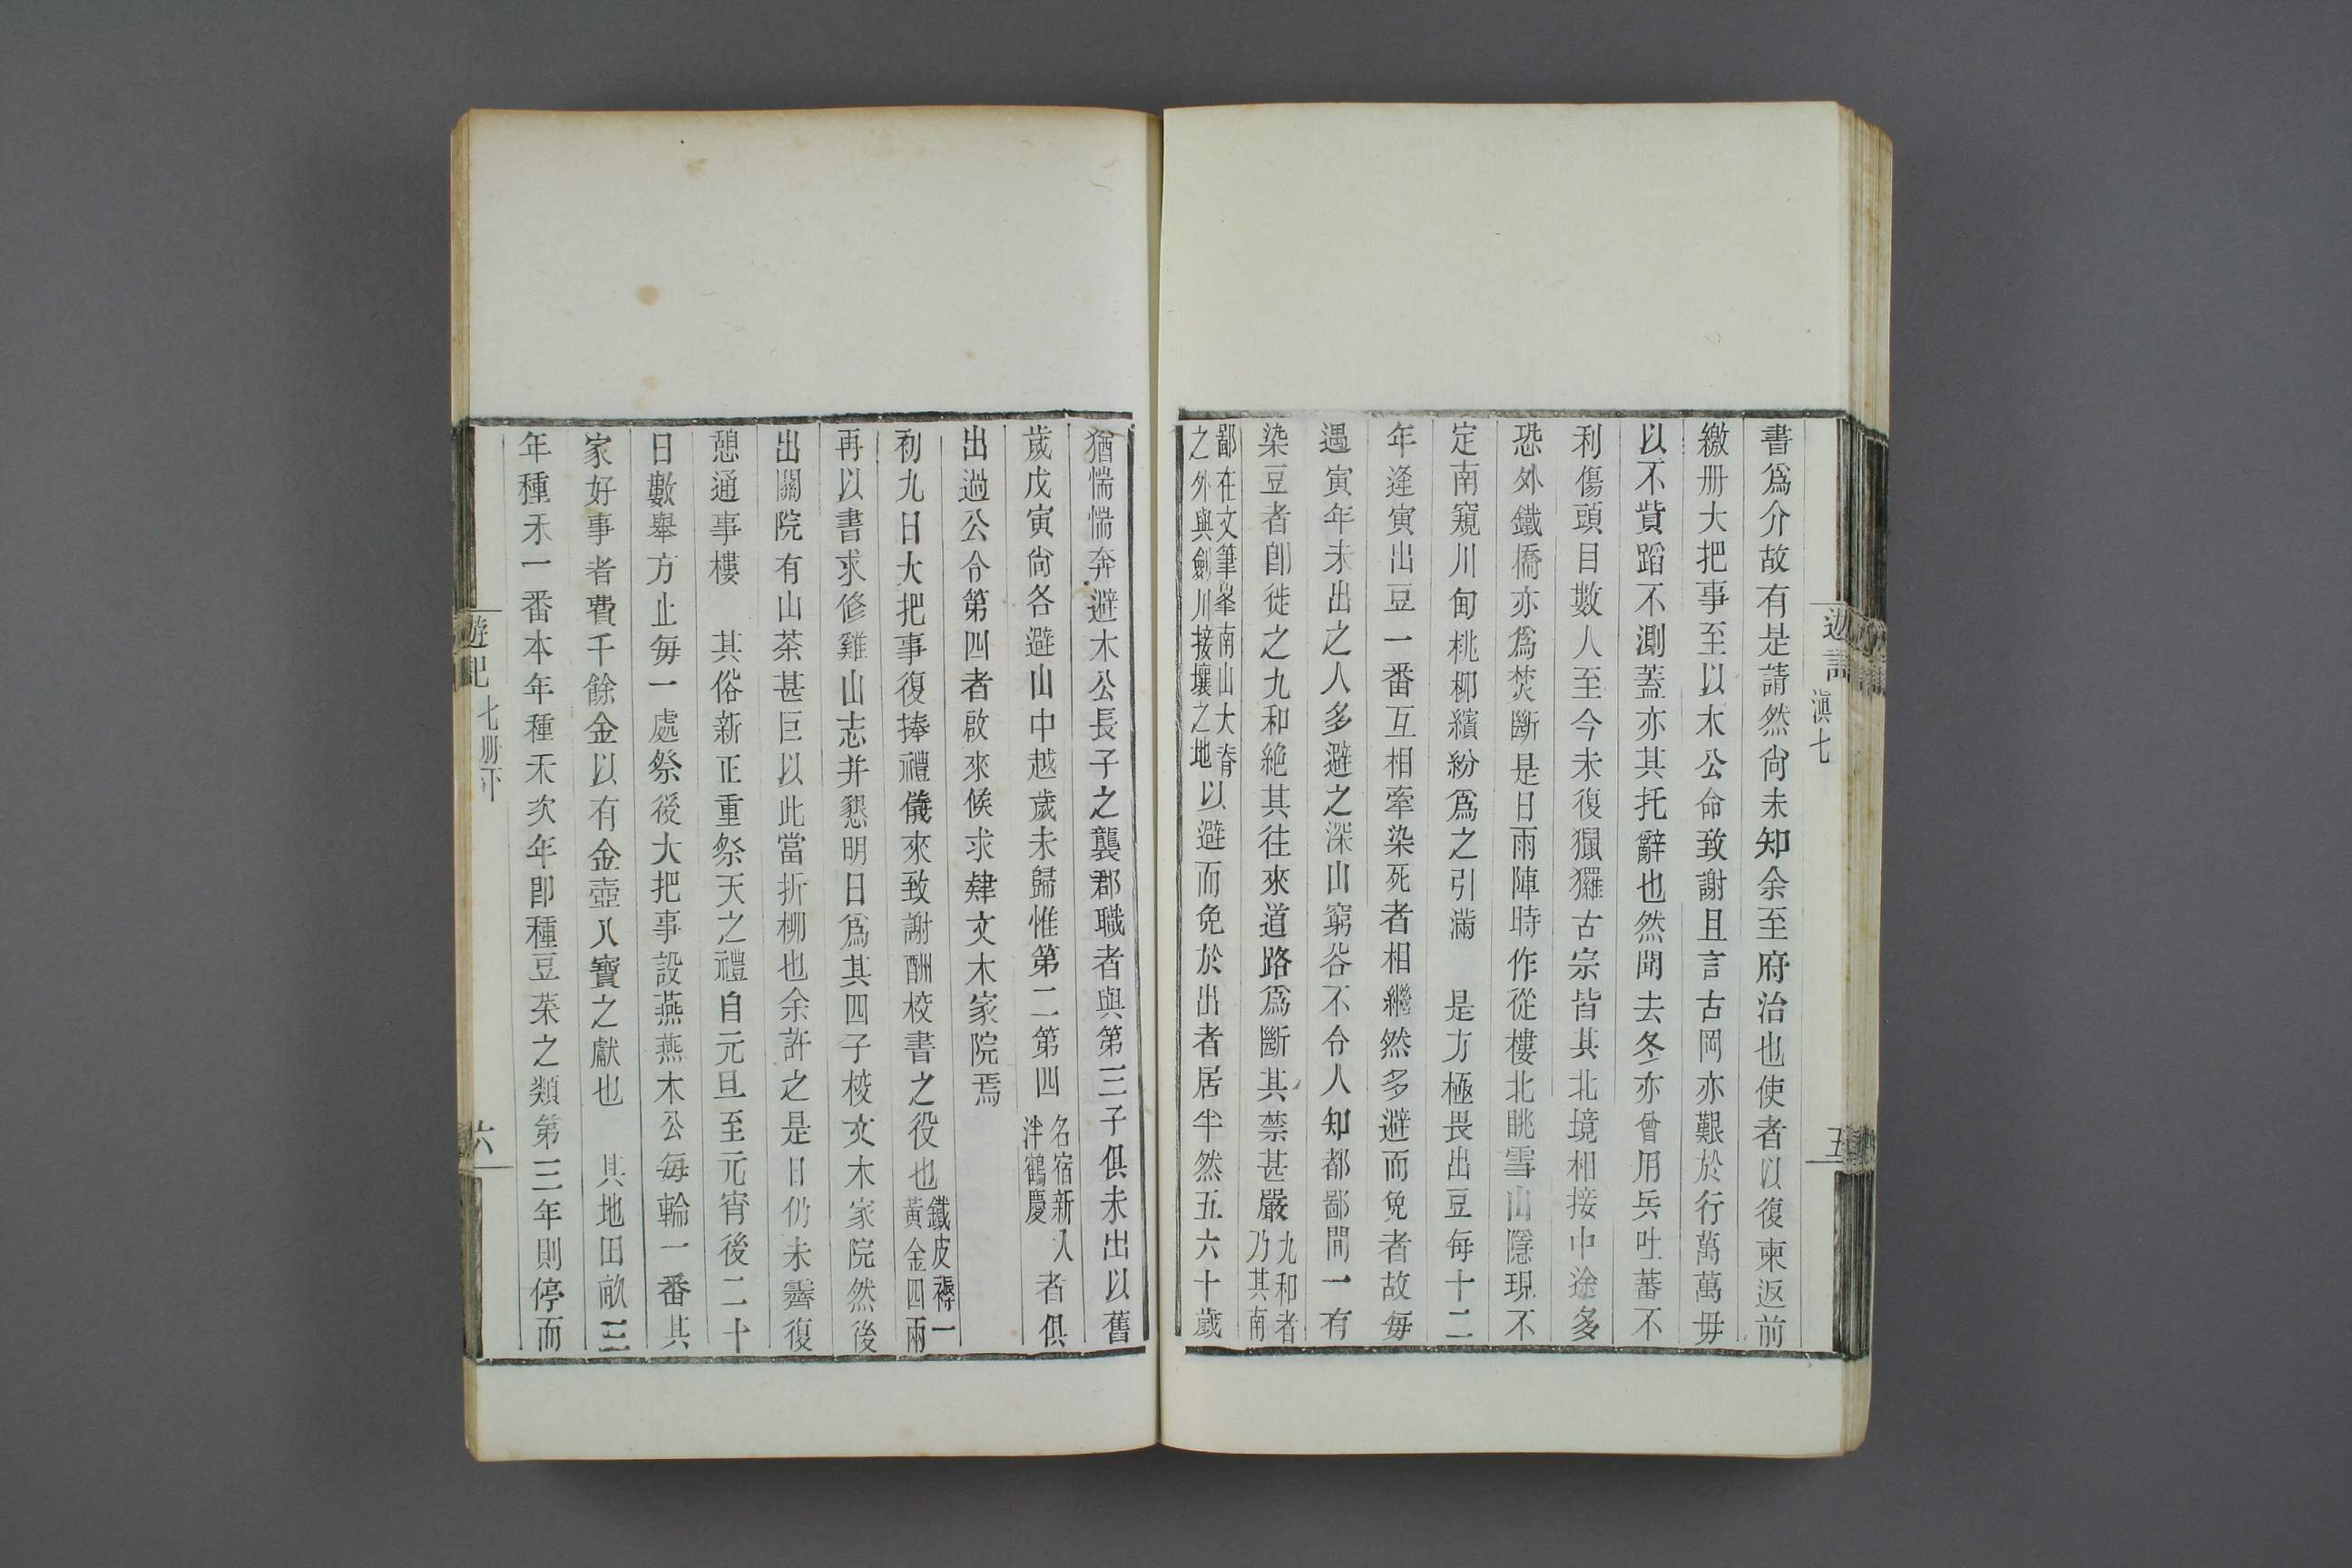 遊記 滇七 五
書爲介故有是請然尙未知余至府治也使者以復柬返前
繳册大把事至以木公命致謝且言古岡亦艱於行萬萬毋
以不貲蹈不測蓋亦其托辭也然聞去冬亦曾用兵吐蕃不
利傷頭目數人至今未復猓玀古宗皆其北境相接中途多
恐外鐵橋亦爲焚斷是日雨陣時作從樓北眺雪山隱現不
定南窺川甸桃柳繽紛爲之引滿　是方極畏出豆每十二
年逢寅出豆一番互相牽染死者相繼然多避而免者故每
遇寅年未出之人多避之深山窮谷不令人知都鄙間一有
染豆者卽徙之九和絕其往來道路爲斷其禁甚嚴九和者乃其南
鄙在文筆峯南山大脊之外與劍川接壤之地以避而免於出者居半然五六十歲
猶惴惴奔避木公長子之襲郡職者與第三子俱未出以舊
歲戊寅尙各避山中越歲未歸惟第二第四名宿新入泮鶴慶者俱
出過公令第四者啟來候求肄文木家院焉
初九日大把事復捧禮儀來致謝酬校書之役也鐵皮褥一黃金四兩
再以書求修雞山志并懇明日爲其四子校文木家院然後
出關院有山茶甚巨以此當折柳也余許之是日仍未霽復
憩通事樓　其俗新正重祭天之禮自元旦至元宵後二十
日數舉方止每一處祭後大把事設燕燕木公每輪一番其
家好事者費千餘金以有金壺八寶之獻也　其地田畝三
年種禾一番本年種禾次年卽種豆菜之類第三年則停而
遊記 七册下 六